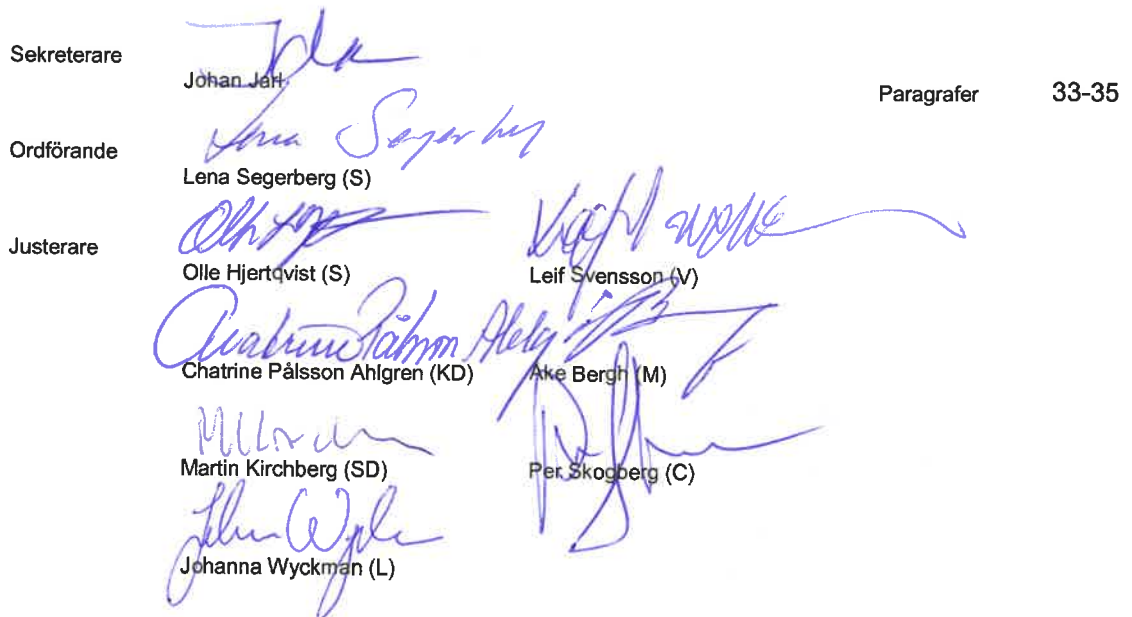 Sekreterare
Johan Jarl
Paragrafer 33-35
Ordförande
Lena Segerberg
Lena Segerberg (S)
Justerare
Olle Hjertqvist (S)
Leif Svensson (V)
Chatrine Pålsson Ahlgren
Chatrine Pålsson Ahlgren (KD)
Åke Bergh (M)
Martin Kirchberg (SD)
Per Skogberg (C)
Johanna Wyckman (L)